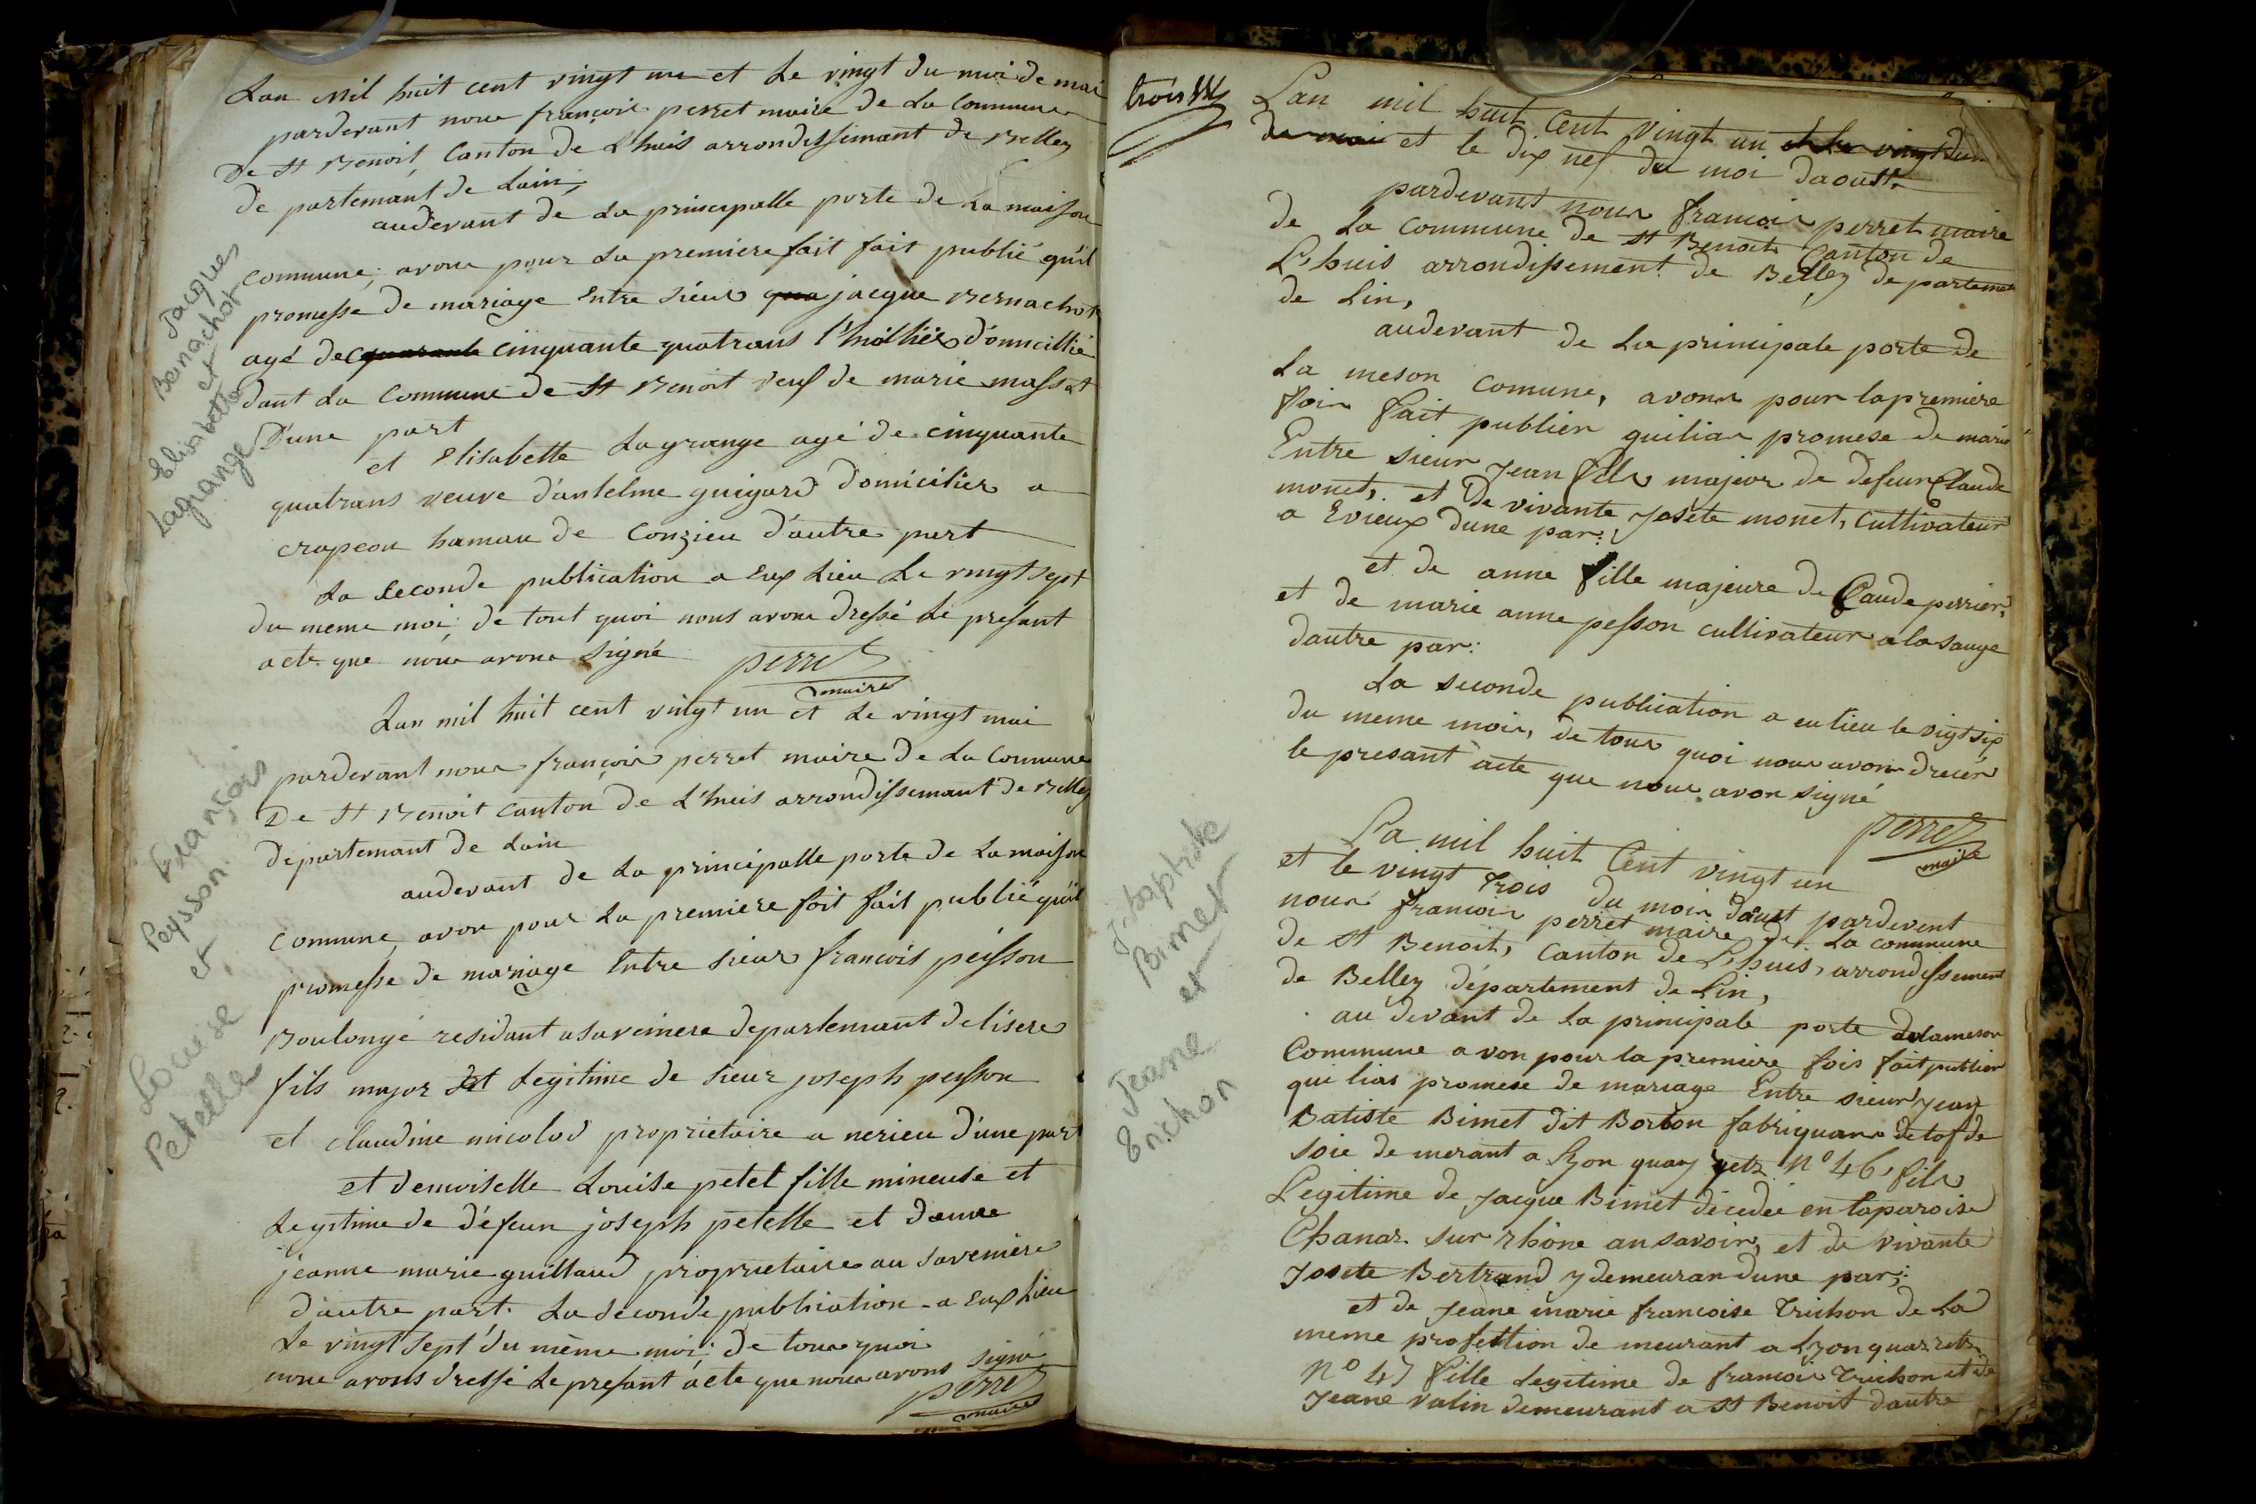 Lan mil huit cent vingt un et Le vingt du moi de mai
pardevant nous françois perret maire de La Commune
De St Benoit, Canton de L'huis arrondissemant de Belley
de partemant de Lain,
audevant de La principalle porte de La maison
commune, avons pour La premiere fait fait publié qu'il
promesse de mariage Entre sieur qua jacque Bernachot
agé de quarante cinquante quatrans domicillié
dant La Commune de St Benoit veuf de marie massat
D'une part
et Elisabette Lagrange agé de cinquante
quatrans veuve d'antelme guigard domicilier a
crapeou hamau de Conzieu d'autre part
La Seconde publication a Eux Lieu Le vingt sept
du meme moi, de tout quoi nous avons dressé Le présant
acte que nous avons signé
perret
maire
Lan mil huit cent vingt un et Le vingt mai
pardevant nous françois perret maire de La Commune
De St Benoit canton de L'huis arrondissemant de Belley
departemant de Lain
audevant de La principalle porte de La maison
commune, avon pour La premiere foit fait publié qu'il
promesse de mariage Entre sieur francois peisson
Boulongé residant a saveinere departemant de lisere
fils major et Legitime de sieur joseph peysson
et claudine micolod proprietaire a nerieu d'une part
et demoiselle Louise petel fille mineuse et
Legitime de défeun joseph petelle et danne
jeanne marie guillaud proprietaire au saveniere
d'autre part. La seconde publication a Eux Lieu
Le vingt sept du même moi; de tous quoi
nous avons dressé Le présant acte que nous avons signé
perret
maire
Jacques
Bernachot
et
Elisabette
Lagrange
François
Peysson
et
Louise
Petelle
trois
Lan mil huit Cent vingt un et le vingt du
de mai et le dix nef du moi daoust.
pardevant nous francois perret maire
de La Commune de St Benoit Canton de
L'huis arrondissement de Belley departement
de Lin,
audevant de La principale porte de
La meson comune, avons pour la premiere
foir fait publier quilias promese de maria
Entre sieur jean fils majeur de defeur Claude
monet, et De vivante Josete monet, Cultivateur
a Evieux dune par:
et de anne fille majeure de Claude perrier,
et de marie anne pesson cultivateur a la sauge
dautre par:
La seconde publication a eu lieu le vigt six
du meme moir, de tous quoi nous avons dreser
le presant acte que nous avon signé
perret
maire
La mil huit Cent vingt un
et le vingt trois du moir daust pardevent
nous francoir perret maire de La commune
de St Benoit, Canton de L'huis, arrondissement
de Belley département de Lin,
au devant de La principale porte de la meson
Commune avon pour la premiere fois fait publier
qui lias promese de mariage Entre sieur jean
Batiste Bimet dit Borbon fabriquans detof de
soie de merant a Lyon quay retz n° 46, fils
Legitime de Jacque Bimet decedée en la paroise
Chanas sur rhône an savoir, et de vivante
Josete Bertrand y demeuran dune par;
et de Jeane marie francoise Trichon de La
meme profettion de meurant a Lyon quay retz
n° 47 fille Legitime de francois Trichon et de
Jeane valin demeurant a St Benoit dautre
J. baptiste
Bimet
et
Jeanne
Trichon